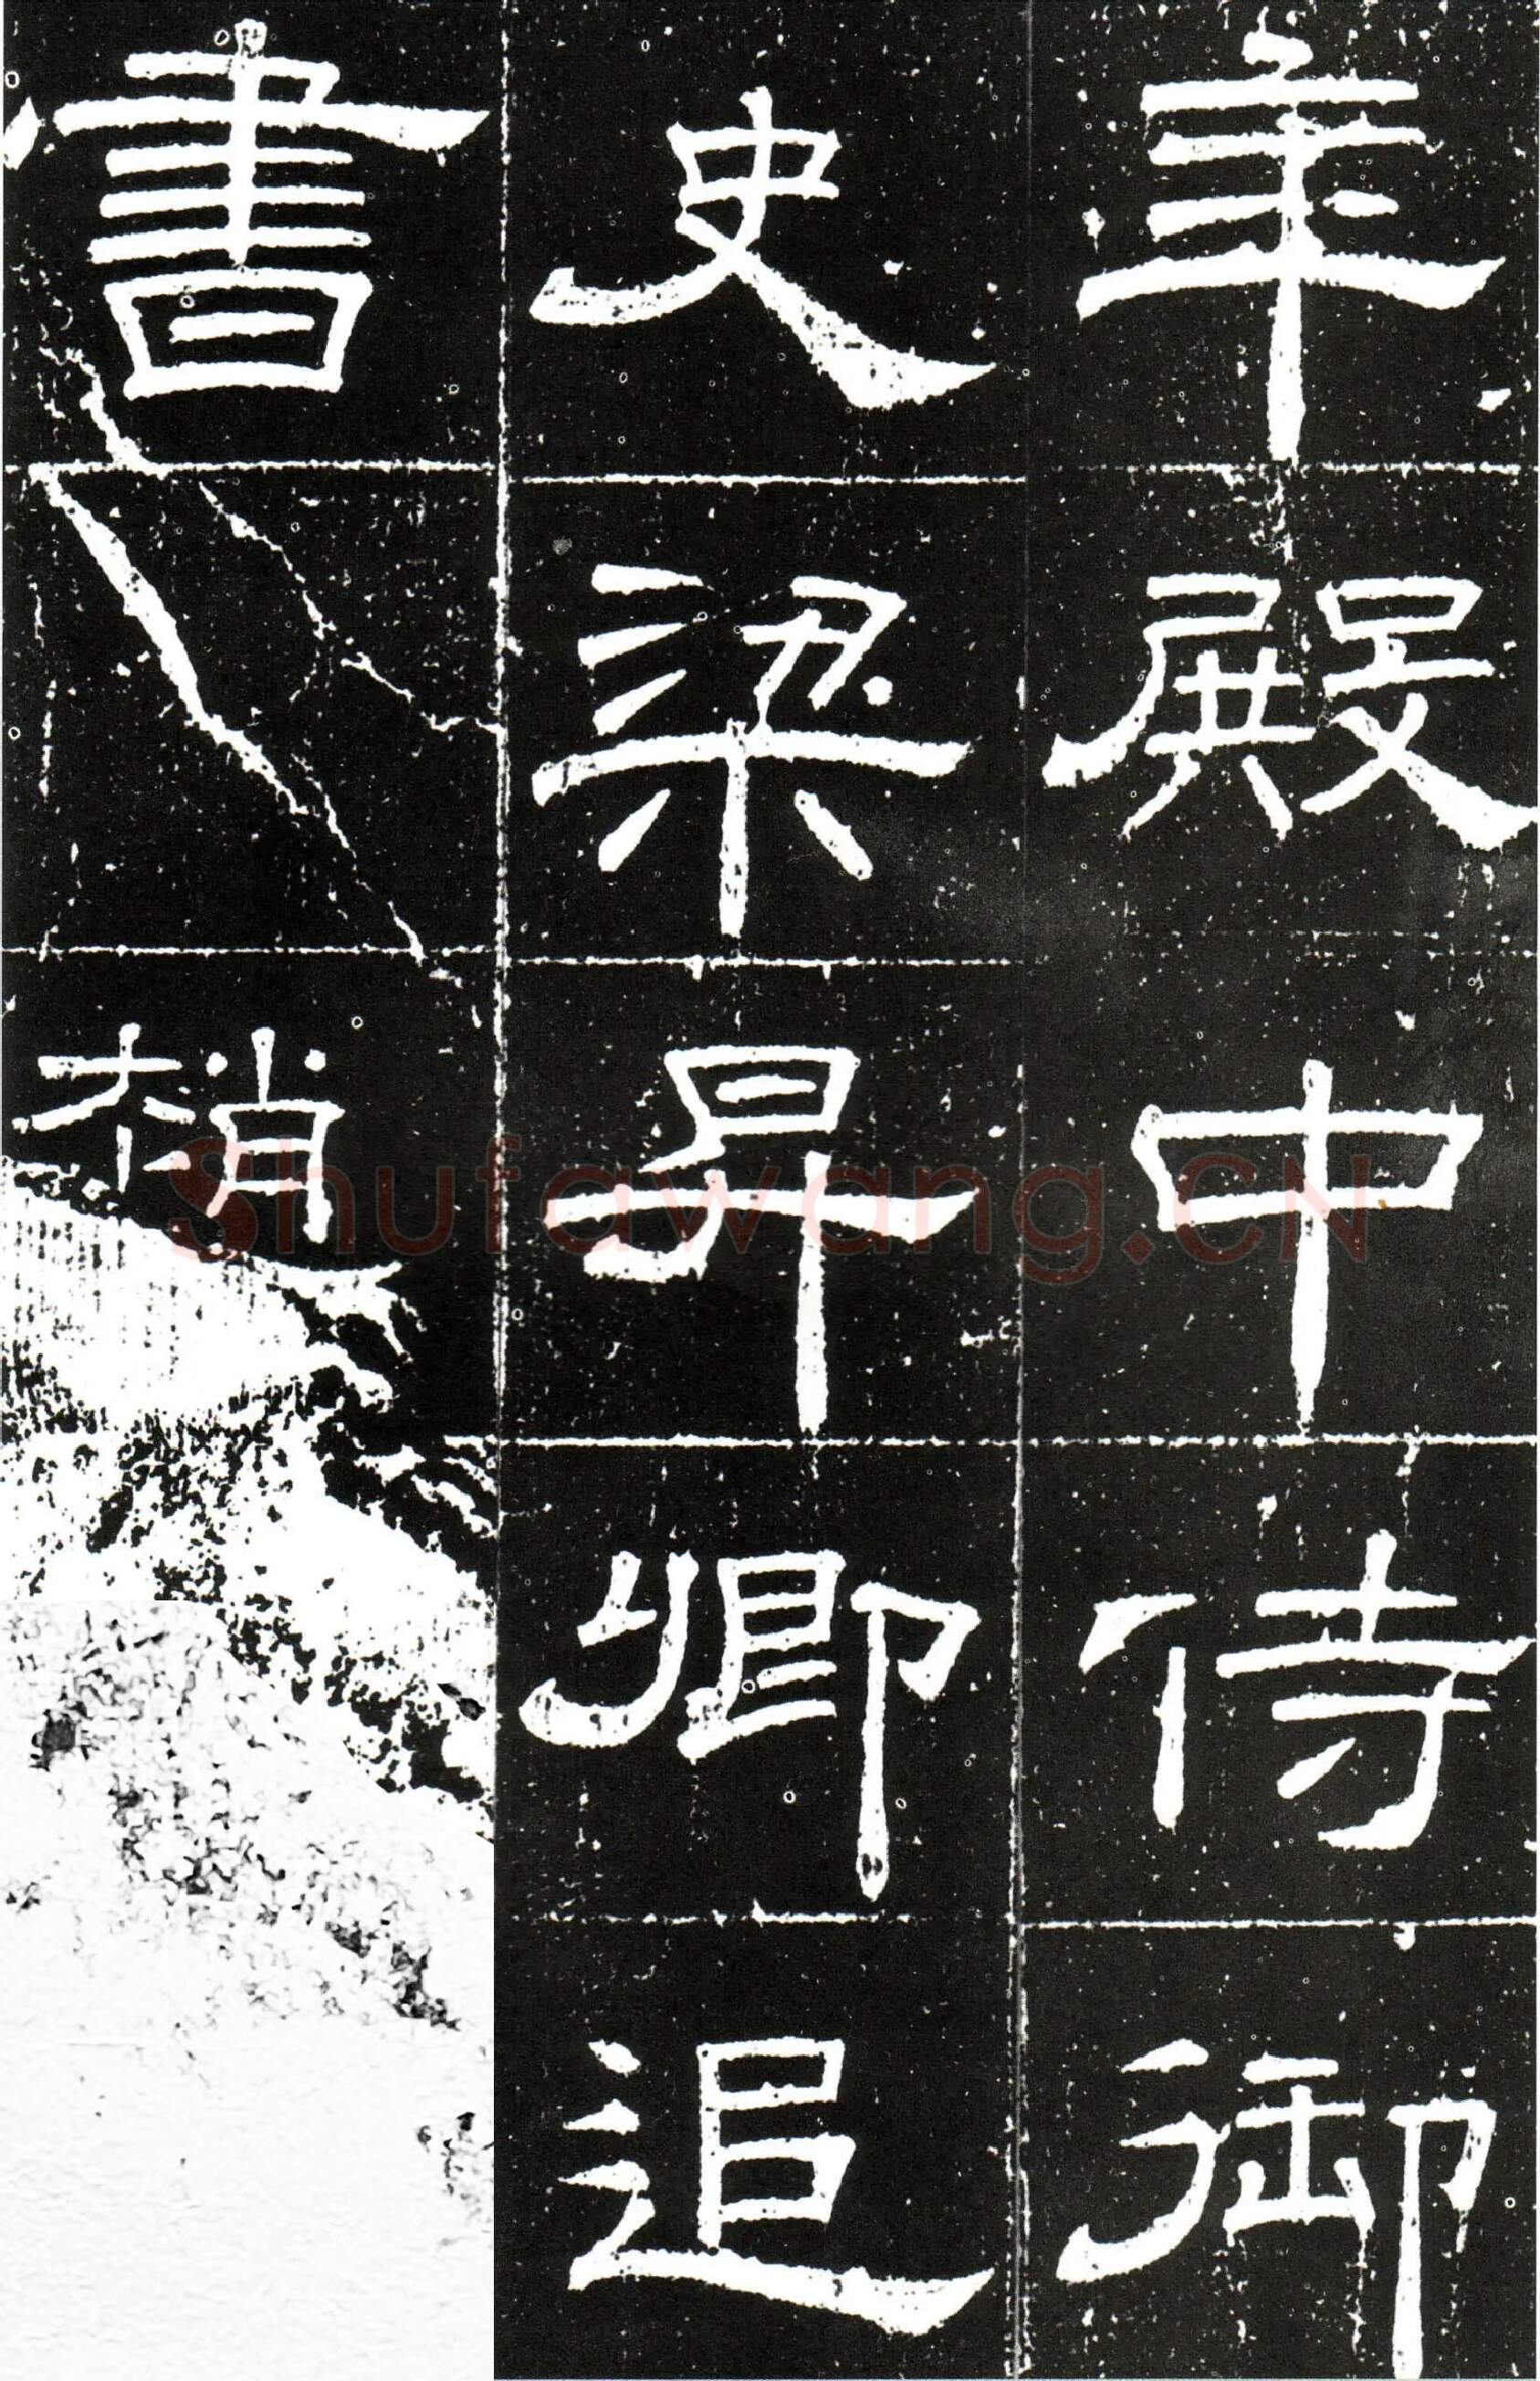 年殿中侍御
史梁昇卿追
書 梢
Shufawang.CN